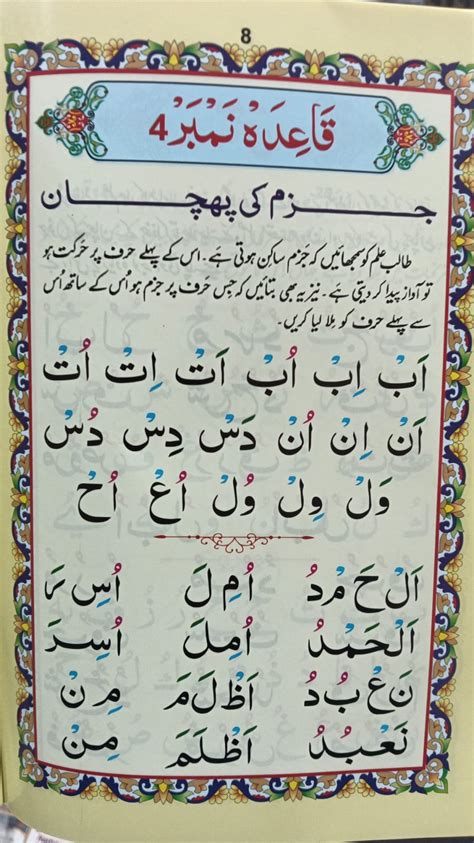 8
قَاعِدَہْ نَمْبَرْ 4
جزم کی پہچان
طالب علم کو سمجھائیں کہ جَزم ساکن ہوتی ہے۔ اس کے پہلے حرف پر حَرکت ہو
تو آواز پیدا کر دیتی ہے۔ نیز یہ بھی بتائیں کہ جس حَرف پر جزم ہو اُس کے ساتھ اُس
سے پہلے حرف کو مِلا لیا کریں۔
اَبْ اِبْ اُبْ اَتْ اِتْ اُتْ
اَنْ اِنْ اُنْ دَسْ دِسْ دُسْ
وَلْ وِلْ وُلْ اُعْ اُحْ
اَلْ حَ مْ دُ اُ مِ لَ اُ سِ رَ
اَلْحَمْدُ اُمِلَ اُسِرَ
نَ عْ بُ دُ اَ ظْ لَ مَ مِ نْ
نَعْبُدُ اَظْلَمَ مِنْ